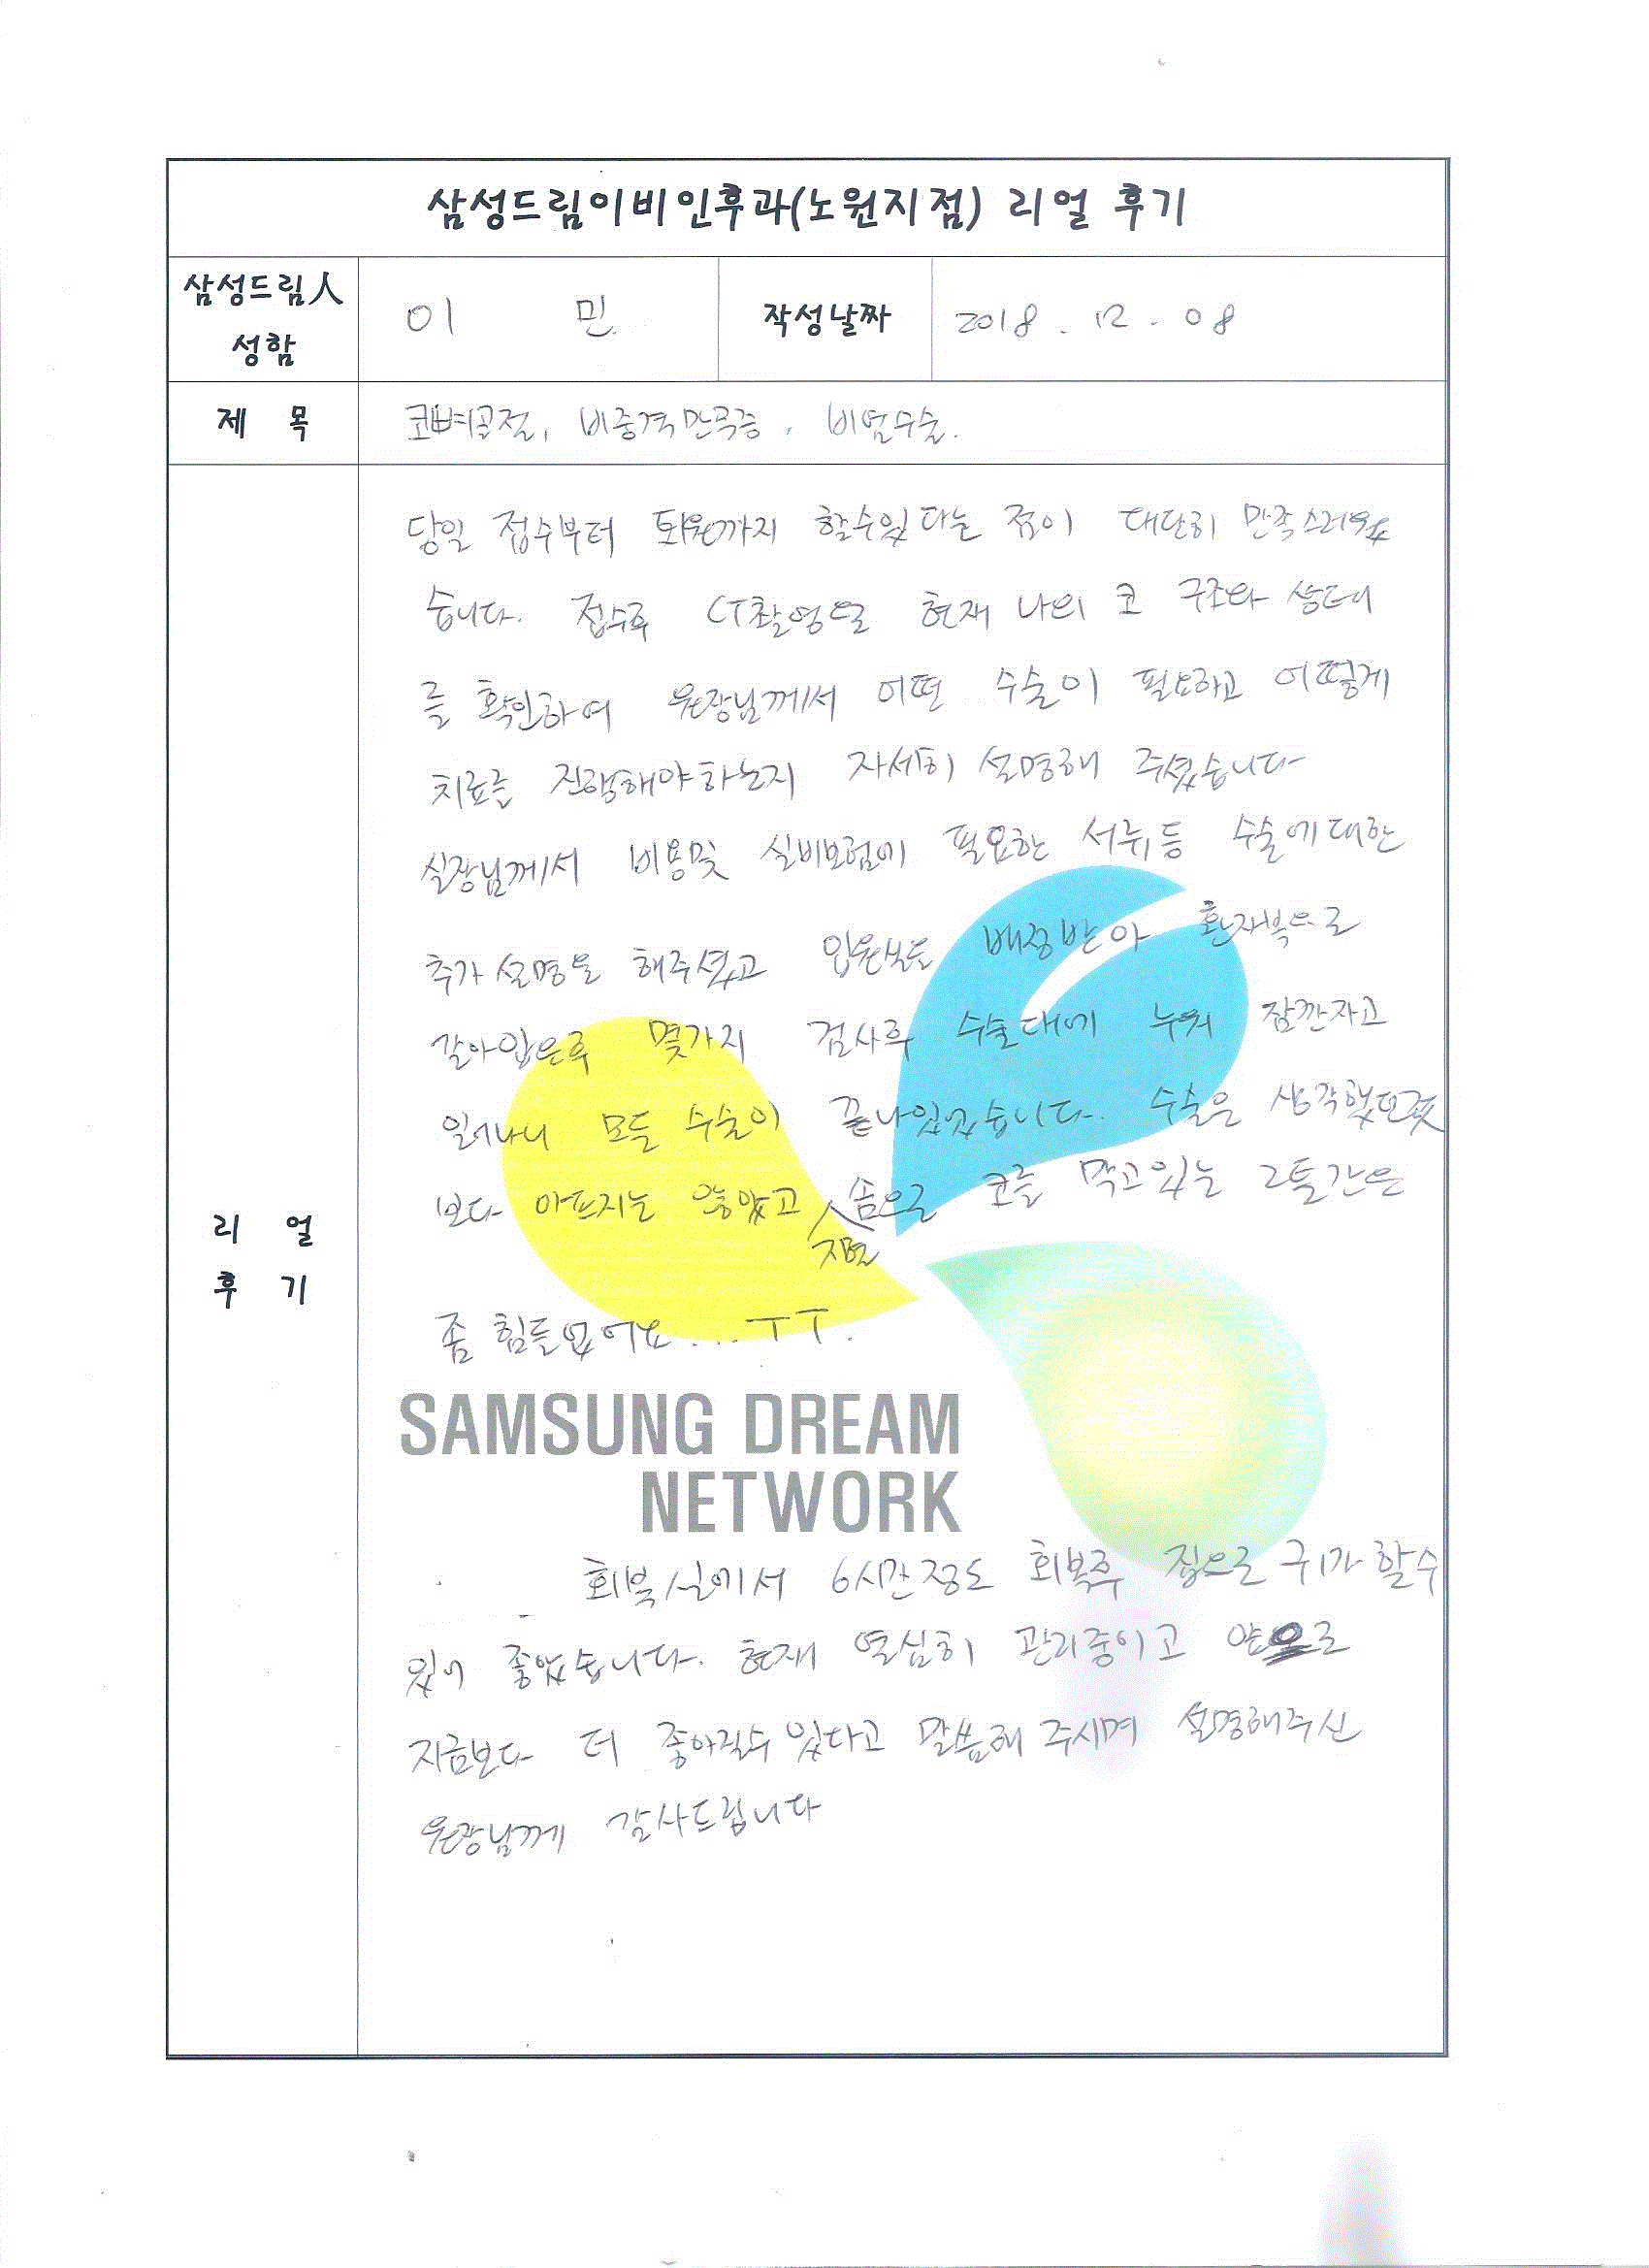 삼성드림이비인후과(노원지점) 리얼 후기
삼성드림人
성함
이 민
작성날짜
2018. 12. 08
제 목
코뼈골절, 비중격만곡증, 비염수술.
당일 접수부터 퇴원까지 할수있다는 점이 대단히 만족스러웠
습니다. 접수후 CT촬영으로 현재 나의 코 구조와 상태
를 확인하여 원장님께서 어떤 수술이 필요하고 어떻게
치료를 진행해야하는지 자세히 설명해 주셨습니다
실장님께서 비용및 실비보험에 필요한 서류등 수술에대한
추가설명을 해주셨고 입원실을 배정받아 환자복으로
갈아입은후 몇가지 검사후 수술대에 누워 잠깐자고
일어나니 모든 수술이 끝나있었습니다. 수술은 생각했던것
보다 아프지는 않았고 솜으로 코를 막고있는 2틀간은
지면
좀 힘들었어요... ㅜㅜ.
리 얼
후 기
SAMSUNG DREAM
NETWORK
회복실에서 6시간정도 회복후 집으로 귀가할수
있어 좋았습니다. 현재 열심히 관리중이고 앞으로
지금보다 더 좋아질수있다고 말씀해 주시며 설명해주신
원장님께 감사드립니다